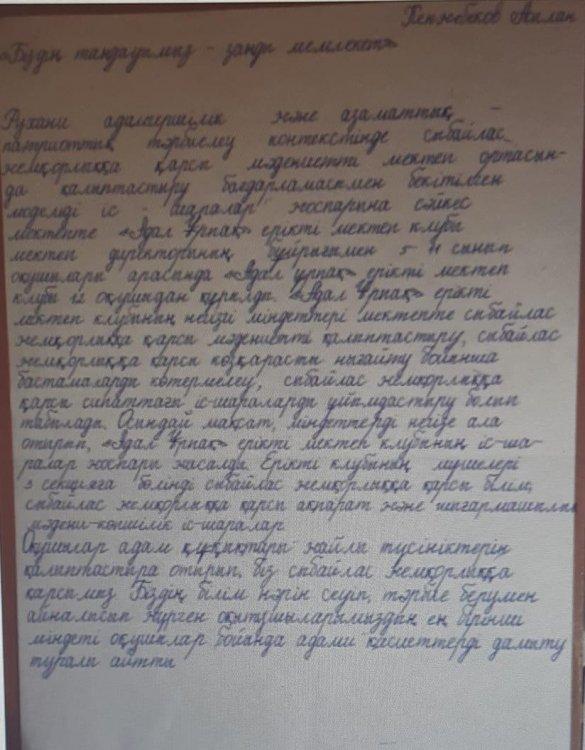 Кенжебеков Аплан
«Біздің таңдауымыз – заңды мемлекет»
Рухани адамгершілік және азаматтық
патриоттық тәрбиелеу контекстінде сыбайлас
жемқорлыққа қарсы мәдениетті мектеп ортасын-
да қалыптастыру бағдарламасымен бекітілген
моделді іс - шаралар жоспарына сәйкес
мектепте «Адал Ұрпақ» ерікті мектеп клубы
мектеп директорының бұйрығымен 5-11 сынып
оқушылары арасында «Адал ұрпақ» ерікті мектеп
клубы 12 оқушыдан құрылды. «Адал Ұрпақ» ерікті
мектеп клубының негізгі міндеттері мектепте сыбайлас
жемқорлыққа қарсы мәдениетті қалыптастыру, сыбайлас
жемқорлыққа қарсы көзқарасты нығайту бойынша
бастамаларды көтермелеу, сыбайлас жемқорлыққа
қарсы сипаттағы іс-шараларды ұйымдастыру болып
табылады. Осындай мақсат, міндеттерді негізе ала
отырып, «Адал Ұрпақ» ерікті мектеп клубының іс-ша-
ралар жоспары жасалды. Ерікті клубының мүшелері
3 секцияға бөлінді сыбайлас жемқорлыққа қарсы білім,
сыбайлас жемқорлыққа қарсы ақпарат және шығармашылық
мәдени-көпшілік іс-шаралар
Оқушылар адам құқықтары жайлы түсініктерін
қалыптастыра отырып, біз сыбайлас жемқорлыққа
қарсымыз Біздің білім нәрін сеуіп, тәрбие берумен
айналысып жүрген оқытушыларымыздың ең бірінші
міндеті оқушылар бойында адами қасиеттерді дамыту
туралы айтты